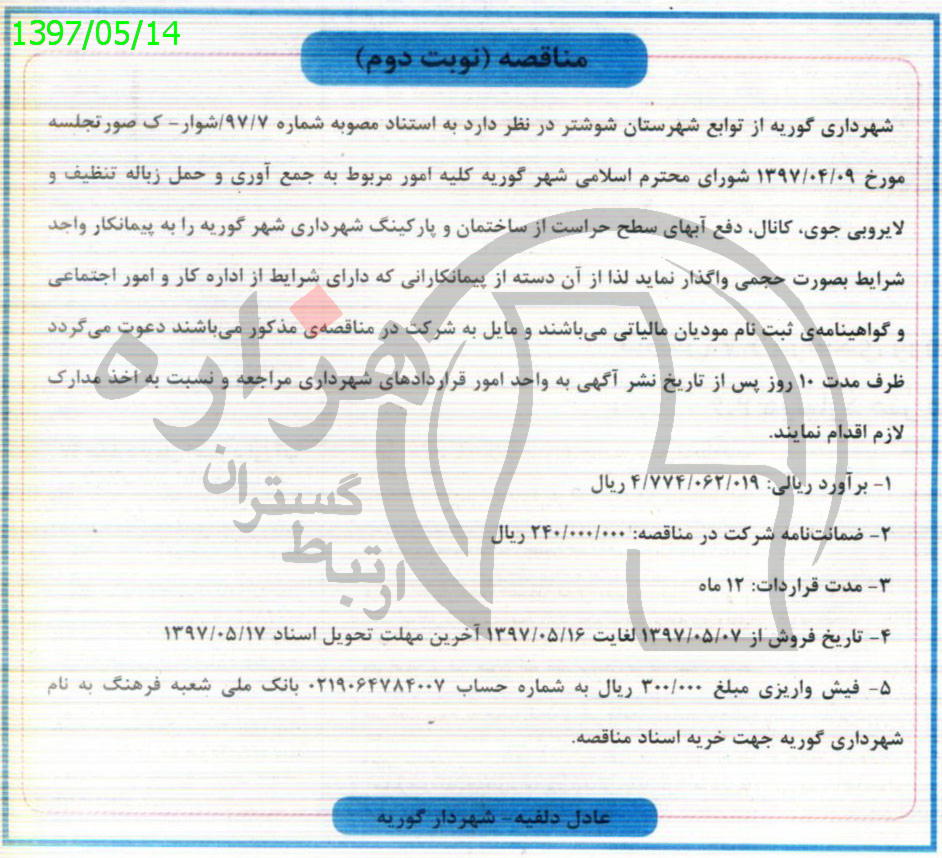 1397/05/14
مناقصه (نوبت دوم)
شهرداری گوریه از توابع شهرستان شوشتر در نظر دارد به استناد مصوبه شماره ۹۷/۷/شوار- ک صورتجلسه
مورخ ۱۳۹۷/۰۴/۰۹ شورای محترم اسلامی شهر گوریه کلیه امور مربوط به جمع آوری و حمل زباله تنظیف و
لایروبی جوی، کانال، دفع آبهای سطح حراست از ساختمان و پارکینگ شهرداری شهر گوریه را به پیمانکار واجد
شرایط بصورت حجمی واگذار نماید لذا از آن دسته از پیمانکارانی که دارای شرایط از اداره کار و امور اجتماعی
و گواهینامه‌ی ثبت نام مودیان مالیاتی می‌باشند و مایل به شرکت در مناقصه‌ی مذکور می‌باشند دعوت می‌گردد
ظرف مدت ۱۰ روز پس از تاریخ نشر آگهی به واحد امور قراردادهای شهرداری مراجعه و نسبت به اخذ مدارک
لازم اقدام نمایند.
۱- برآورد ریالی: ۴/۷۷۴/۰۶۲/۰۱۹ ریال
۲- ضمانت‌نامه شرکت در مناقصه: ۲۴۰/۰۰۰/۰۰۰ ریال
۳- مدت قراردات: ۱۲ ماه
۴- تاریخ فروش از ۱۳۹۷/۰۵/۰۷ لغایت ۱۳۹۷/۰۵/۱۶ آخرین مهلت تحویل اسناد ۱۳۹۷/۰۵/۱۷
۵- فیش واریزی مبلغ ۳۰۰/۰۰۰ ریال به شماره حساب ۰۲۱۹۰۶۴۷۸۴۰۰۷ بانک ملی شعبه فرهنگ به نام
شهرداری گوریه جهت خریه اسناد مناقصه.
عادل دلفیه- شهردار گوریه
هزاره
گستران
ارتباط